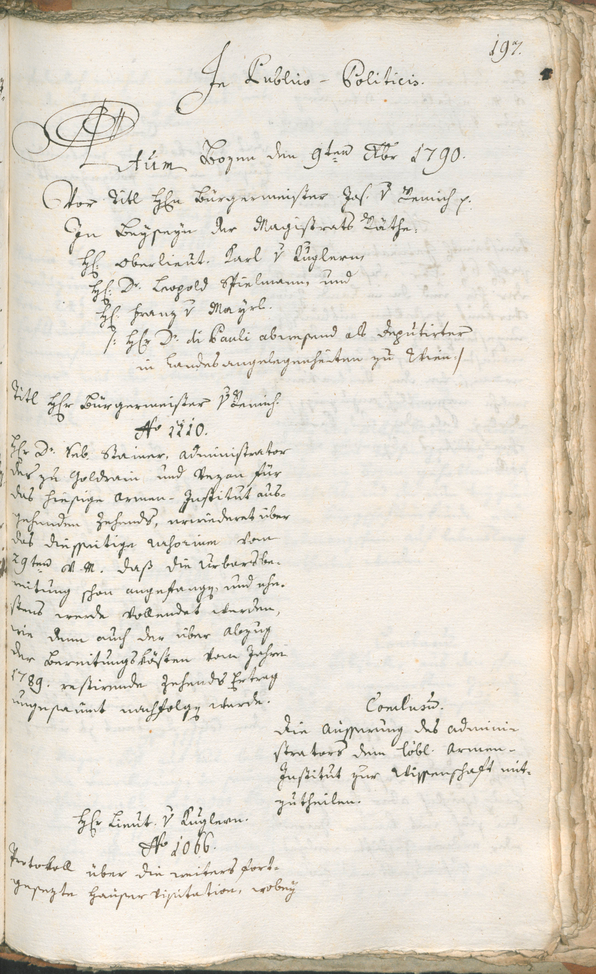 197.
In Publico-Politicis.
Actum Bozen den 9ten Xbr 1790.
Vor Titl Hhn Bürgermeister Jos. v Remich p.
In Beyseyn der Magistrats Räthe:
Hh: Oberlieut. Karl v Kuglern,
Hh: Dr. Leopold Spielmann, und
Hh: Franz v Mayrl.
/: Hhr Dr. di Pauli abwesend als Deputirter
in Landesangelegenheiten zu Wien :/
Titl Hhr Bürgermeister v Remich.
No 1110.
Hhr Dr. Seb. Stainer, Administrator
des zu Goldrain und Vezan für
das hiesige Armen-Institut aus-
gehenden Zehends, erwiederet über
das diesseitige vom
29ten v. M. daß die Urbarsbe-
reitung schon angefangen, und ehe-
stens werde vollendet werden,
wie denn auch der über Abzug
der Bereitungskösten vom Jahre
1789. restirende Zehends Ertrag
ungesaumt nachfolgen werde.
Conclusum.
Die Äusserung des Admini-
strators dem löbl. Armen-
Institut zur Wissenschaft mit-
zutheilen.
Hhr Lieut. v Kuglern.
No 1066.
Protokoll über die weiters fort-
gesezte Häuser Visitation, wobey